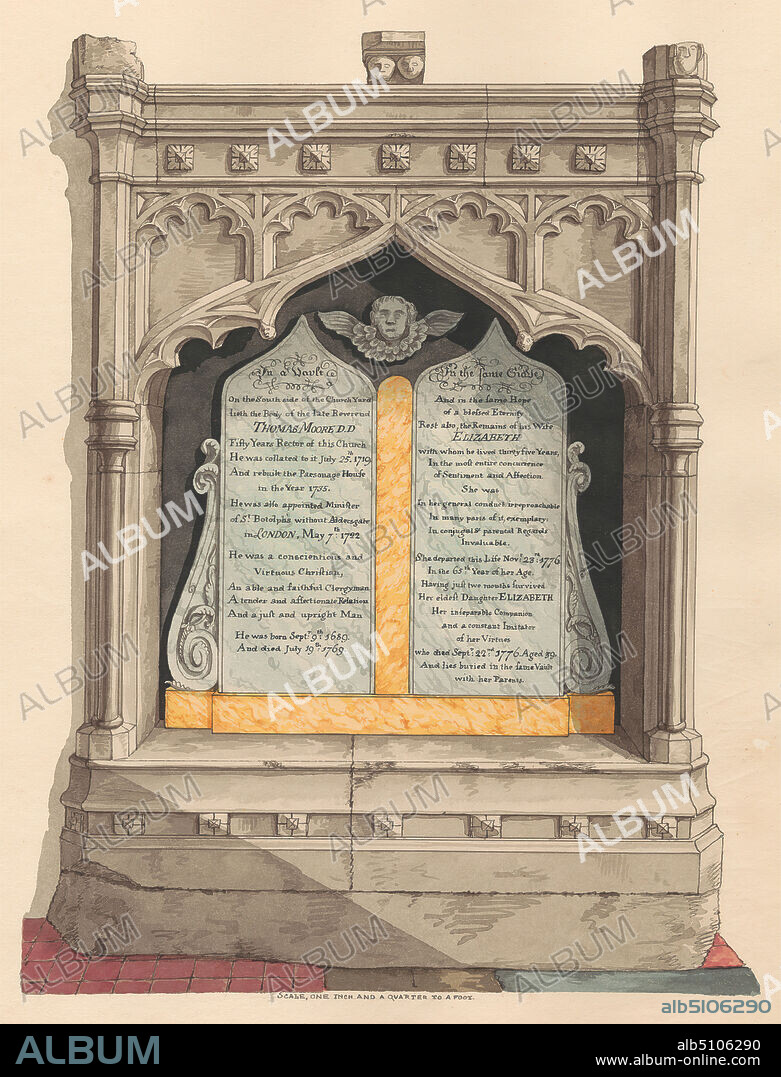 In a Vault
On the South side of the Church Yard
lieth the Body of the late Reverend
THOMAS MOORE D.D
Fifty Years Rector of this Church
He was collated to it July 25.th 1719
And rebuilt the Parsonage House
in the Year 1735.
He was also appointed Minister
of S.t Botolph's without Aldersgate
in LONDON, May 7.th 1722
He was a conscientious and
Virtuous Christian,
An able and faithful Clergyman
A tender and affectionate Relation
And a just and upright Man
He was born Sept.r 9.th 1689
And died July 19.th 1769
In the same Grave
And in the same Hope
of a blessed Eternity
Rest also, the Remains of his Wife
ELIZABETH
with whom he lived thirty five Years,
In the most entire concurrence
of Sentiment and Affection.
She was
In her general conduct irreproachable
In many parts of it, exemplary:
In conjugal & parental Regards
Invaluable.
She departed this Life Nov.r 23.th 1776
In the 65.th Year of her Age,
Having just two months survived
Her eldest Daughter ELIZABETH
Her inseparable Companion
and a constant Imitator
of her Virtues
who died Sept.r 22.nd 1776. Aged 39.
And lies buried in the same Vault
with her Parents.
SCALE, ONE INCH AND A QUARTER TO A FOOT.
ALBUM
alb5106290
ALBUM
alb5106290
www.album-online.com